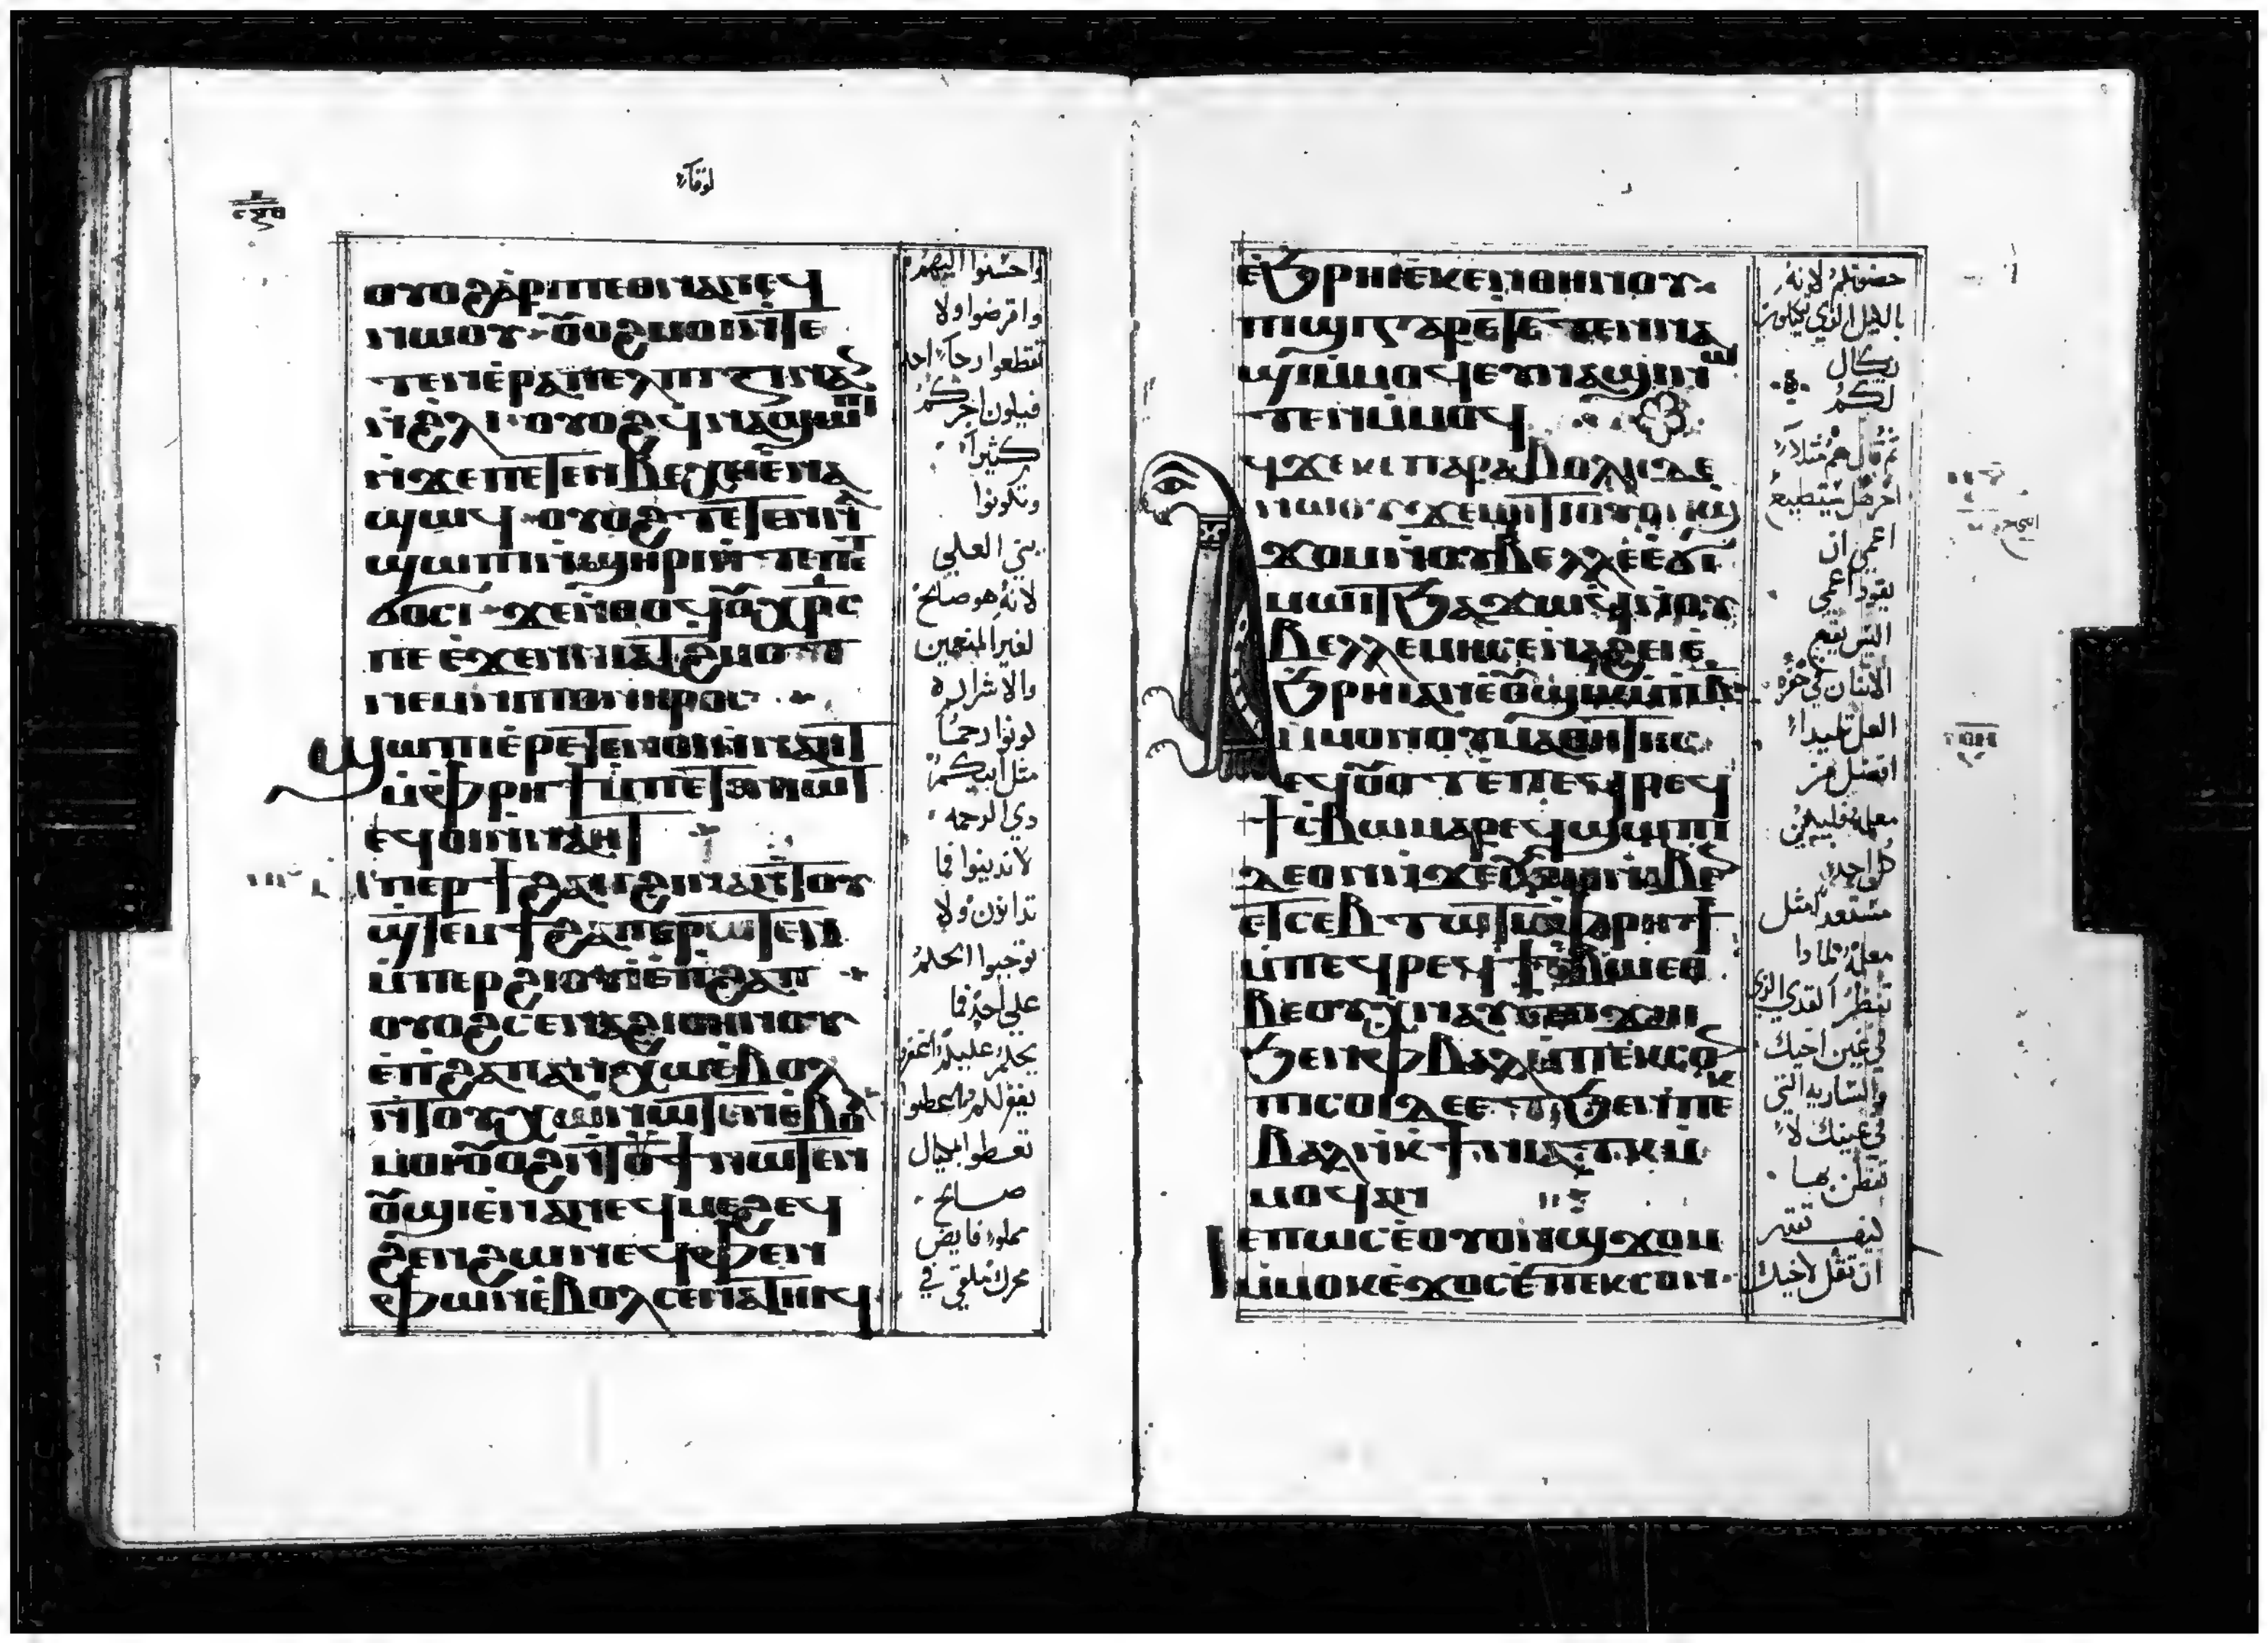 لوقا
ⲟⲩⲟϩⲁⲣⲓⲡⲉⲑⲛⲁⲛⲉϥ
ⲛⲱⲟⲩ ⲟⲩⲟϩ ⲙⲟⲓⲛ̀ⲧⲉ
ⲧⲉⲛⲉ̀ⲣⲁⲡⲉⲗⲡⲓⲍⲓⲛⲁⲛ
ⲛ̀ϩⲗⲓ ⲟⲩⲟϩ ϥⲛⲁϣⲱⲡⲓ
ⲛ̀ϫⲉⲡⲉⲧⲉⲛⲃⲉⲭⲉⲉ̀ⲛⲁ
ϣⲱϥ ⲟⲩⲟϩ ⲧⲉⲧⲉⲛⲛⲁ
ϣⲱⲡⲓⲛ̀ϣⲏⲣⲓⲛ̀ⲧⲉⲡⲉⲧ
ϭⲟⲥⲓ ϫⲉⲛ̀ⲑⲟϥⲟⲩⲭⲣⲥ
ⲡⲉ ⲉ̀ϫⲉⲛⲛⲓⲁⲧϩⲙⲟⲧ
ⲛⲉⲙⲛⲓⲡⲟⲛⲏⲣⲟⲥ
ϣⲱⲡⲓⲉ̀ⲣⲉⲧⲉⲛⲟⲓⲛ̀ⲛⲁⲏⲧ
ⲙ̀ⲫⲣⲏϯⲙ̀ⲡⲉⲧⲉⲛⲓⲱⲧ
ⲉϥⲟⲓⲛ̀ⲛⲁⲏⲧ
ⲙ̀ⲡⲉⲣϯϩⲁⲡϩⲓⲛⲁⲛ̀ⲧⲟⲩ
ϣⲧⲉⲙϯϩⲁⲡⲉⲣⲱⲧⲉⲛ
ⲙ̀ⲡⲉⲣϩⲓⲟⲩⲓⲉ̀ⲡϩⲁⲡ
ⲟⲩⲟϩⲥⲉⲛⲁϩⲓⲑⲏⲛⲟⲩ
ⲉ̀ⲡϩⲁⲡⲁⲛⲭⲱⲉ̀ⲃⲟⲗ
ⲛ̀ⲧⲟⲩⲭⲱⲛⲱⲧⲉⲛⲉ̀ⲃⲟⲗ
ⲙⲟⲓⲟⲩⲟϩⲛ̀ⲧⲟⲩϯⲛⲱⲧⲉⲛ
ⲟⲩϣⲓⲉ̀ⲛⲁⲛⲉϥⲙⲉϩⲉϥ
ϩⲉⲛϩⲱⲛⲉϥⲫⲉⲛ
ⲫⲱⲛⲉ̀ⲃⲟⲗⲥⲉⲛⲁⲧⲏⲓϥ
واحسنوا اليهم
واقرضوا ولا
تقطعوا رجاء احد
فيكون اجركم
كثيرا
وتكونوا
بني العلي
لانه هو صالح
لغير المنعمين
والاشرار ه
كونوا رحما
مثل ابيكم
ذي الرحمه
لا تدينوا فما
تدانون ولا
توجبوا الحكم
على احد فما
يحكم عليكم اغفروا
يغفر لكم اعطوا
تعطوا بمكيال
صالح
مملو فايض
محرك يلقى في
ⲉ̀ϧⲣⲏⲓⲉ̀ⲕⲉⲛⲑⲏⲛⲟⲩ
ⲡⲓϣⲓⲅⲁⲣⲉⲧⲉⲧⲉⲛⲛⲁ
ϣⲓⲙ̀ⲙⲟϥⲉⲩⲛⲁϣⲓⲛⲱ
ⲧⲉⲛⲙ̀ⲙⲟϥ
ϥϫⲉⲕⲉⲡⲁⲣⲁⲃⲟⲗⲏⲇⲉ
ⲛⲱⲟⲩϫⲉⲙⲏⲧⲓⲟⲩⲟⲛϣ
ϫⲟⲙⲛ̀ⲟⲩⲃⲉⲗⲗⲉⲉ̀ϭⲓ
ⲙⲱⲓⲧϧⲁϫⲱϥⲛ̀ⲟⲩ
ⲃⲉⲗⲗⲉⲙⲏⲥⲉⲛⲁϩⲉⲓⲉ̀
ϧⲣⲏⲓⲁⲛⲉ̀ⲟⲩϣⲓⲕⲙ̀ⲡⲃ
ⲙ̀ⲙⲟⲛⲟⲩⲙⲁⲑⲏⲧⲏⲥ
ⲉϥⲟⲩⲟⲧⲉ̀ⲡⲉϥⲣⲉϥ
ϯⲥⲃⲱⲙⲁⲣⲉϥϣⲱⲡⲓ
ⲇⲉⲟⲛⲛ̀ϫⲉⲟⲩⲟⲛⲛⲓⲃⲉⲛ
ⲉⲧⲥⲉⲃⲧⲱⲧⲙ̀ⲫⲣⲏϯ
ⲙ̀ⲡⲉϥⲣⲉϥϯⲥⲃⲱⲉⲑ
ⲃⲉⲟⲩⲭⲛⲁⲩⲉ̀ⲡⲓϫⲏⲓ
ϧⲉⲛⲫⲃⲁⲗⲙ̀ⲡⲉⲕⲥⲟⲛ
ⲡⲓⲥⲟⲓⲇⲉⲉⲧϧⲉⲛⲡⲉ
ⲃⲁⲗⲛ̀ⲕϯⲛⲓⲁⲧⲕⲙ̀
ⲙⲟϥⲁⲛ
ⲓⲉⲡⲱⲥⲉ̀ⲟⲩⲟⲛϣϫⲟⲙ
ⲙ̀ⲙⲟⲕⲉ̀ϫⲟⲥⲉ̀ⲡⲉⲕⲥⲟⲛ
حضونكم لانه
بالكيل الذي تكيلون
يكال
لكم
ثم قال لهم مثلا
اخر هل يستطيع
اعمى ان
يقود اعمى
اليس يقع
الاثنان في حفره
لعل تلميذا
افضل من
معلمه فليكن
كل احد
مستعدا مثل
معلمه لماذا
تنظر القذى الذي
في عين اخيك
والساريه التي
في عينك لا
تفطن بها
كيف تقتدر
ان تقل لاخيك